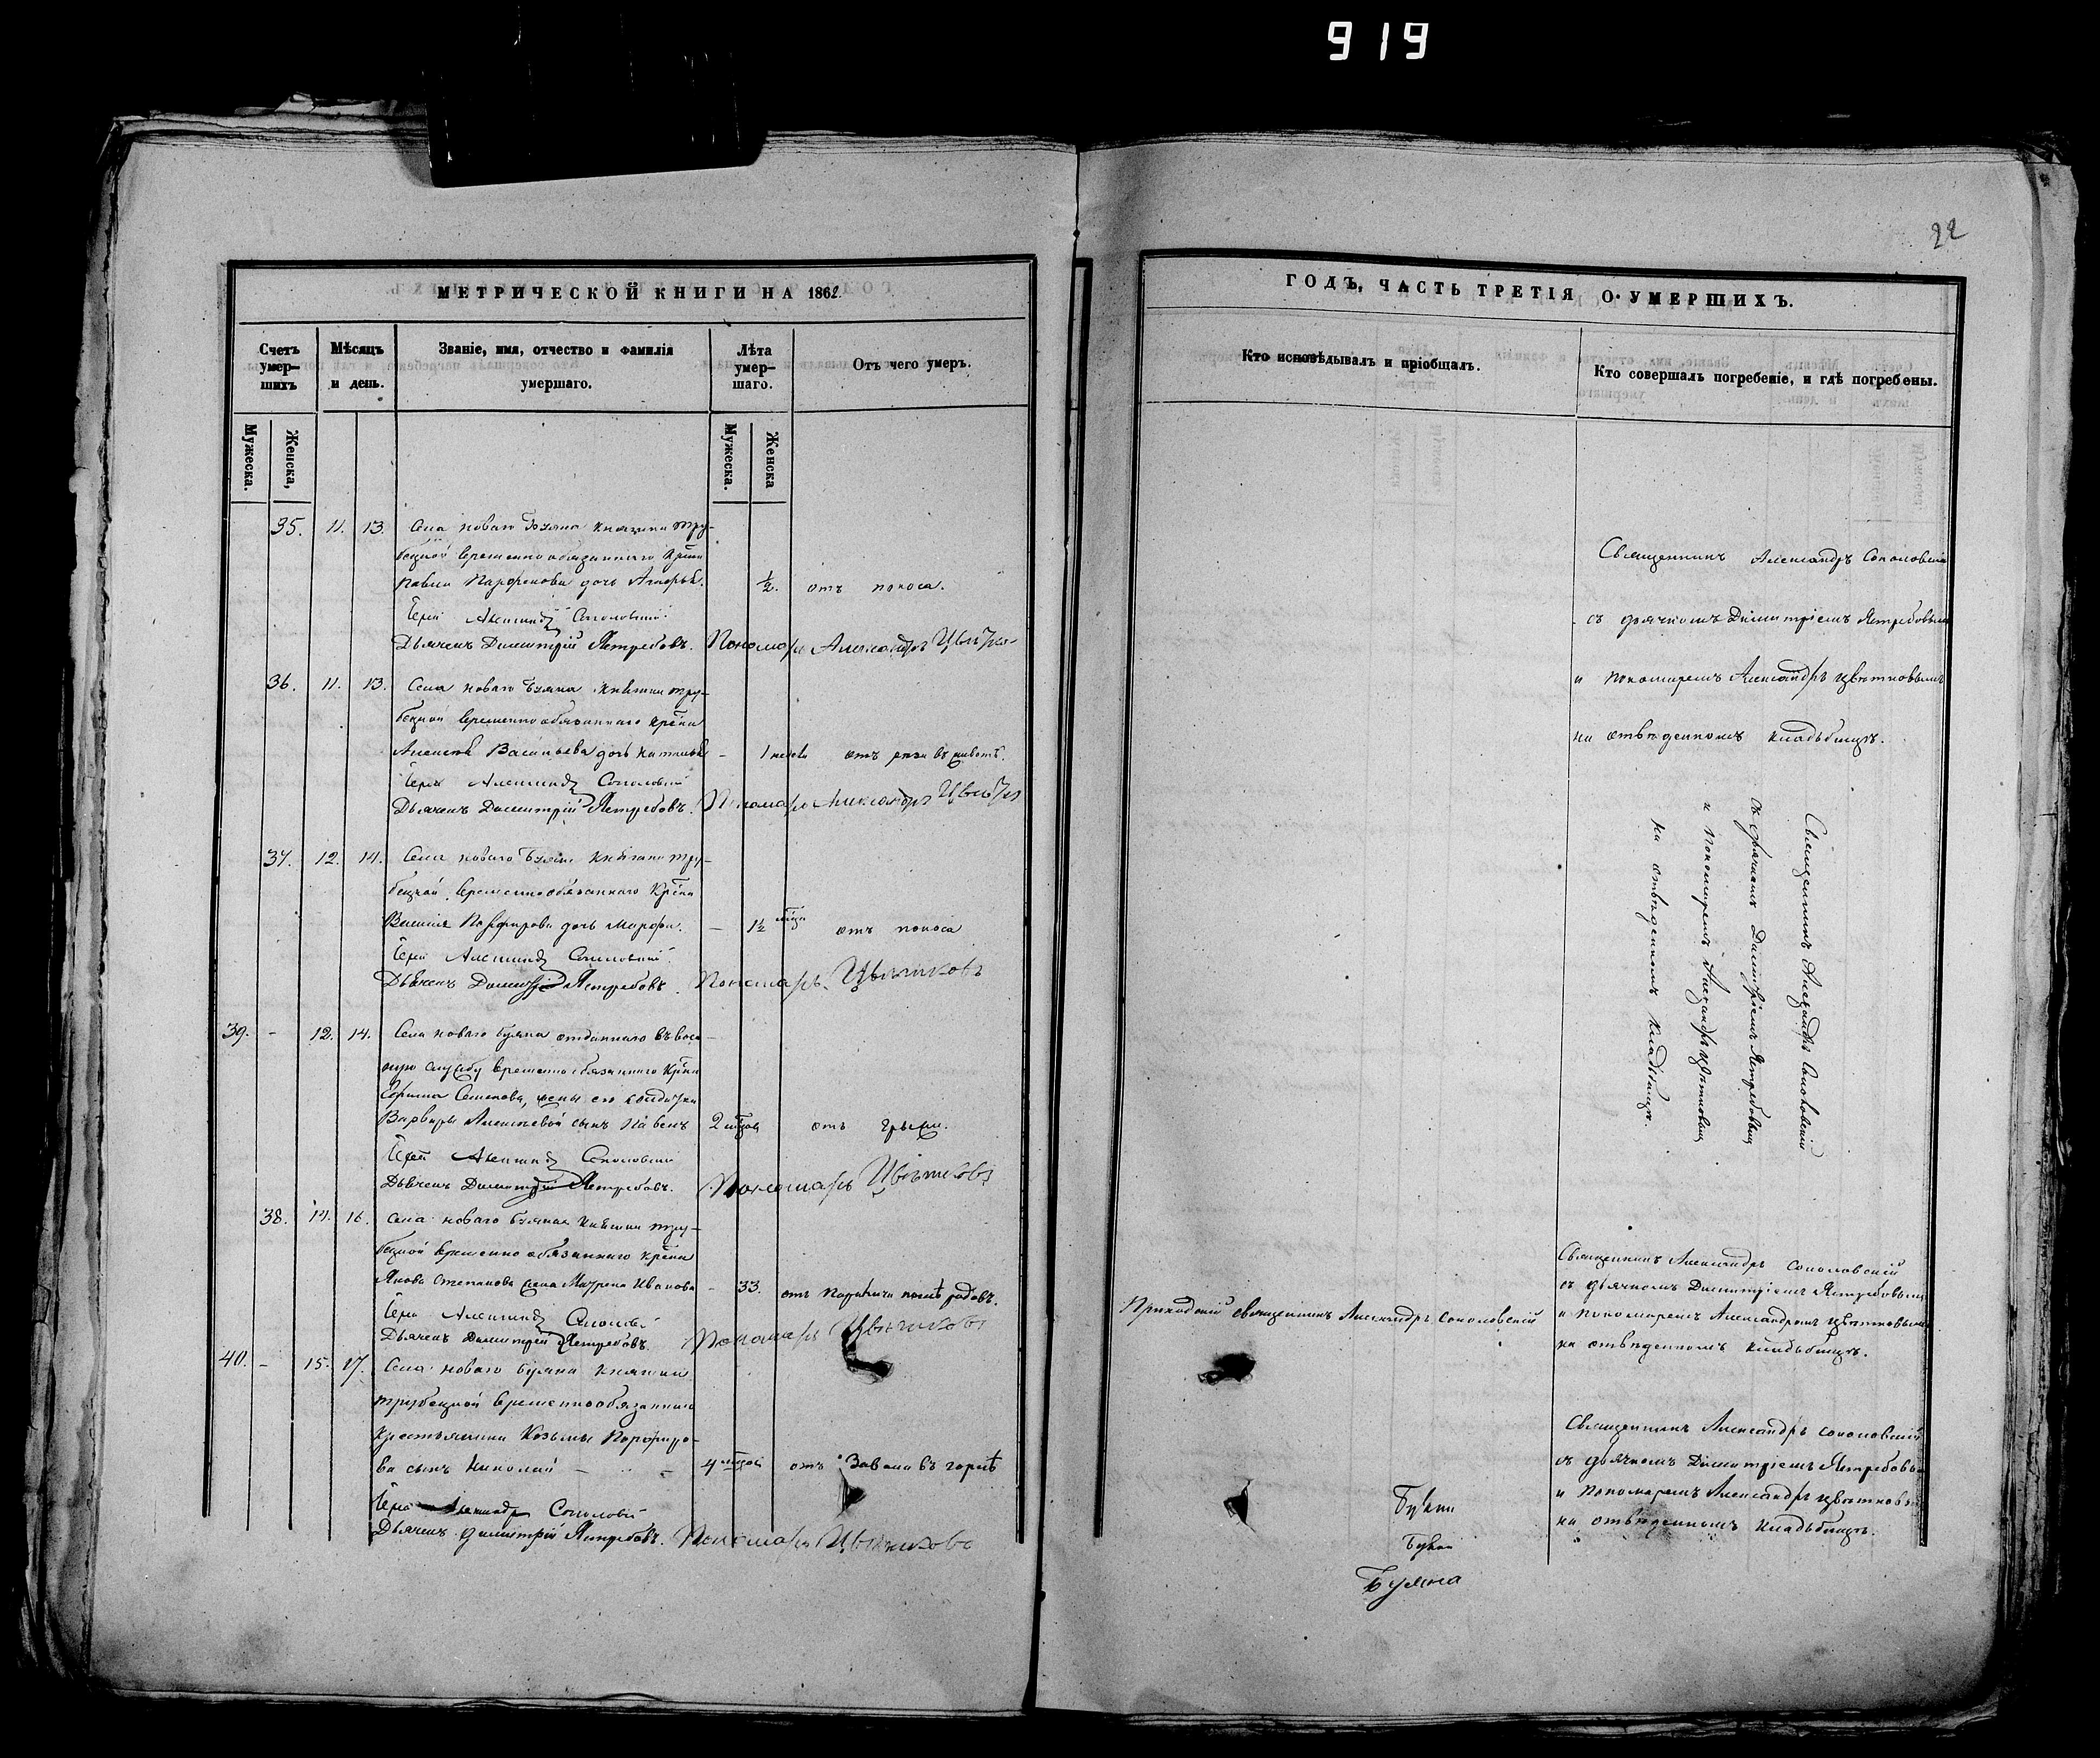 919
22
МЕТРИЧЕСКОЙ КНИГИ НА 1862
Счетъ умер-шихъ
Мѣсяцъ и день.
Званіе, имя, отчество и фамилія умершаго.
Лѣта умер-шаго.
Отъ чего умеръ.
Мужеска.
Женска,
Мужеска.
Женска
35. 11. 13. Села новаго Буяна княгини Тру-
бецкой временнообязаннаго
Павла Парфенова дочь ½. отъ поноса.
Александръ Соколовскій
Дьячекъ Димитрій Ястребовъ. Пономарь Александръ
36. 11. 13. Села новаго Буяна княгини Тру-
бецкой временнообязаннаго
Алексѣя Васильева дочь – 1 недели отъ рези въ животѣ.
Александръ Соколовскій
Дьячекъ Димитрій Ястребовъ. Пономарь Александръ
37. 12. 14. Села новаго Буяна княгини Тру-
бецкой временнообязаннаго
Василія Порфирова дочь Марфа. – 1½ отъ поноса
Александръ Соколовскій
Дьячекъ Димитрій Ястребовъ. Пономарь Цвѣтковъ
39. – 12. 14. Села новаго Буяна отданнаго въ воен-
ную службу временнообязаннаго
Ефима Семенова, жены его солдатки
Варвары Алексѣевой сынъ Павелъ 2 отъ грыжи.
Іерей Александръ Соколовскій
Дьячекъ Димитрій Ястребовъ. Пономарь Цвѣтковъ
38. 14. 16. Села новаго Буяна княгини Тру-
бецкой временно обязаннаго
Якова Степанова жена Матрена Иванова – 33. отъ послѣ родовъ.
Александръ
Дьячекъ Димитрій Ястребовъ. Пономарь Цвѣтковъ
40. – 15. 17. Села новаго Буяна княгини
Трубецкой временнообязаннаго
крестьянина Козьмы Порфиро-
ва сынъ Николай – 4 отъ Завала въ горлѣ
Александръ Соколовскій
Дьячекъ Димитрій Ястребовъ. Пономарь Цвѣтковъ
ГОДЪ, ЧАСТЬ ТРЕТІЯ О УМЕРШИХЪ.
Кто исповѣдывалъ и пріобщалъ.
Кто совершалъ погребеніе, и гдѣ погребены.
Священникъ Александръ Соколовскій
съ дьячкомъ Димитріемъ Ястребовымъ
и пономаремъ Александръ Цвѣтковымъ
на отведенномъ кладбищѣ.
Священникъ Александръ Соколовскій
съ дьячкомъ Димитріемъ Ястребовымъ
и пономаремъ Александръ Цвѣтковымъ
на отведенномъ кладбищѣ.
Приходскій священникъ Александръ Соколовскій
Священникъ Александръ Соколовскій
съ дьячкомъ Димитріемъ Ястребовымъ
и пономаремъ Александромъ Цвѣтковымъ
на отведенномъ кладбищѣ.
Священникъ Александръ Соколовскій
съ дьячкомъ Димитріемъ Ястребовымъ
и пономаремъ Александръ Цвѣтковымъ
на отведенномъ кладбищѣ.
Буяна